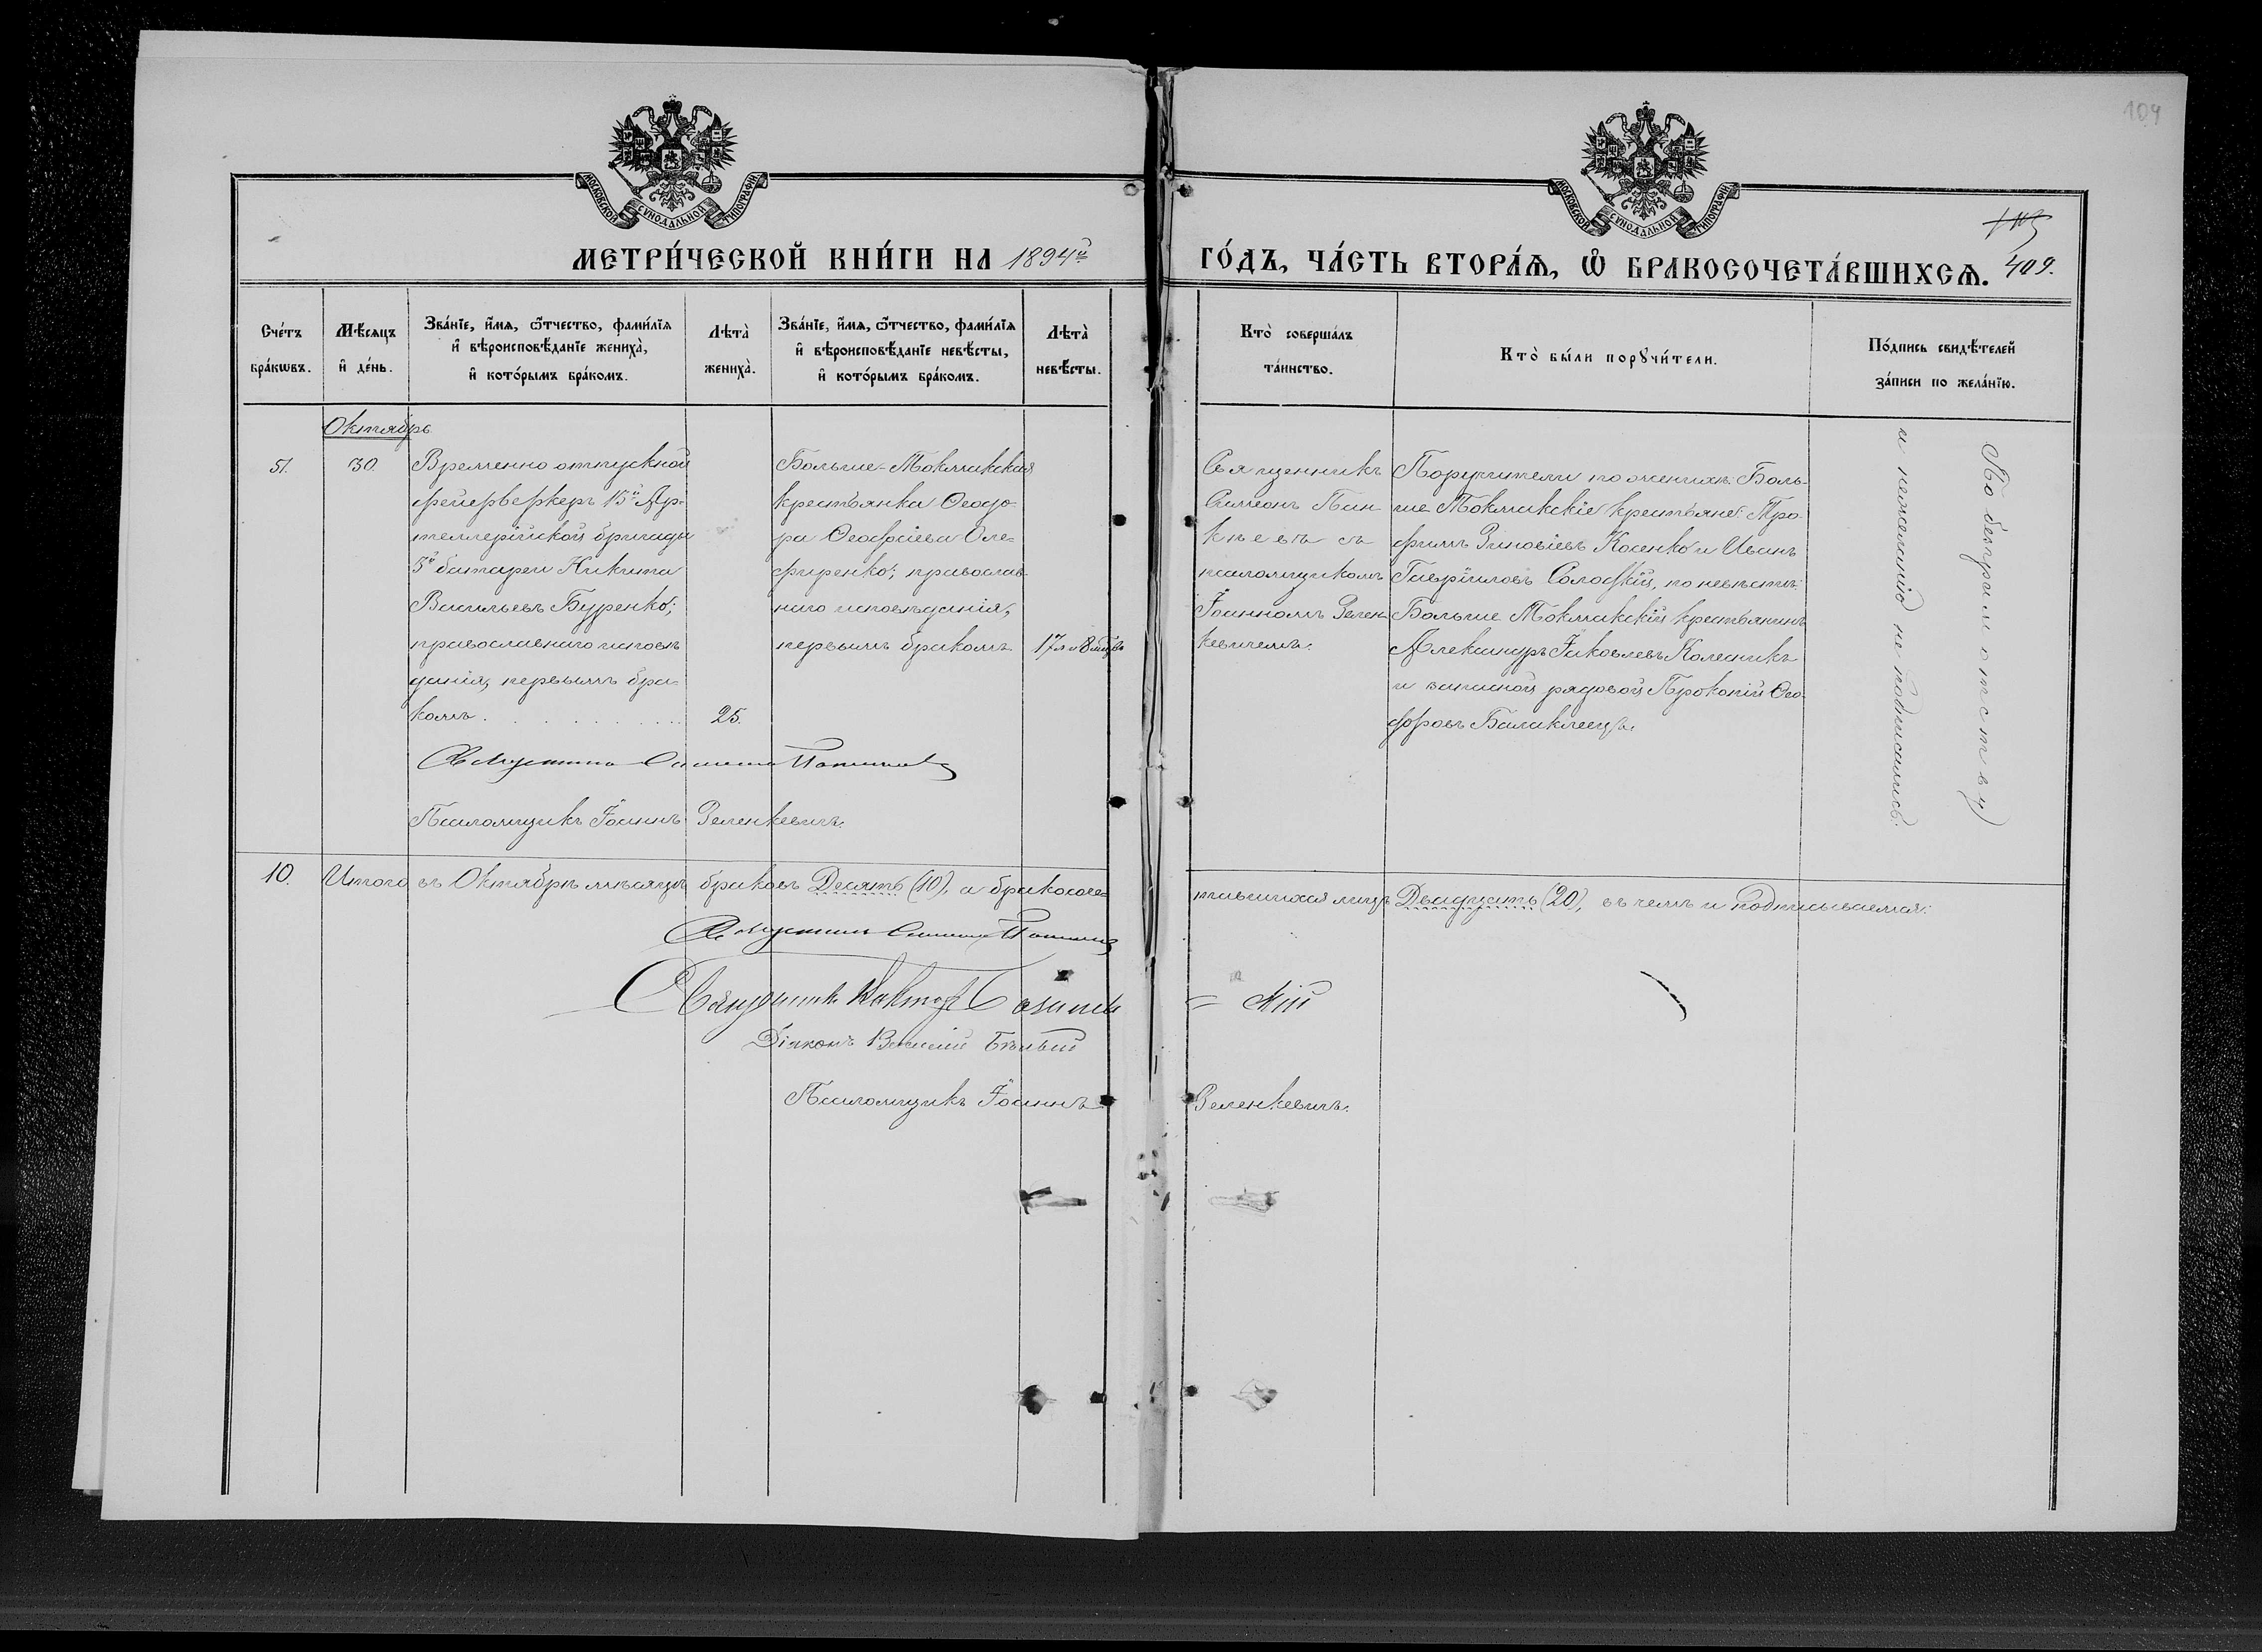 104
МОСКОВСКОЙ СѴНОДАЛЬНОЙ ТИПОГРАФІИ
МОСКОВСКОЙ СѴНОДАЛЬНОЙ ТИПОГРАФІИ
МЕТРИ́ЧЕСКОЙ КНИ́ГИ НА 1894й
ГО́ДЪ, ЧА́СТЬ ВТОРА́Ѧ, Ѡ҆ БРАКОСОЧЕТА́ВШИХСѦ.
409.
Сче́тъ
бра́кѡвъ.
Мѣ́сѧцъ
и҆ де́нь.
Зва́нїе, и҆́мѧ, ѻ҆́тчество, фами́лїѧ
и҆ вѣроисповѣ́данїе жениха̀,
и҆ кото́рымъ бра́комъ.
Лѣта̀
жениха̀.
Зва́нїе, и҆́мѧ, ѻ҆́тчество, фами́лїѧ
и҆ вѣроисповѣ́данїе невѣ́сты,
и҆ кото́рымъ бра́комъ.
Лѣта̀
невѣ́сты.
Кто̀ соверша́лъ
та́инство.
Кто̀ бы́ли порꙋчи́тели.
По́дпись свидѣ́телей
за́писи по жела́нїю.
Октябрь
51.
30.
Временно отпускной
фейерверкеръ 15й Ар-
теллерійской бригады
3й батареи Никита
Васильевъ Буренко;
православнаго исповѣ
данія, первымъ бра-
комъ . . . . . . . . . .
25.
Больше-Токмакская
крестьянка Ѳеодо-
ра Ѳеофріева Оле-
фиренко; православ-
наго исповѣданія,
первымъ бракомъ
17 л и 8 мцвъ
Священникъ
Симеонъ Пан
кѣевъ съ
псаломщикомъ
Іоанномъ Зелен-
кевичемъ.
Поручители по женихѣ: Боль-
ше Токмакскіе крестьяне: Тро-
фимъ Зиновіевъ Косенко и Иванъ
Гавріиловъ Солоскій, по невѣстѣ:
Больше Токмакскій крестьянинъ
Александръ Іаковлевъ Колесникъ
и запасной рядовой Прокопій Ѳео-
доровъ Балаклеецъ.
По безграмотству
и нежеланію не подписались.
Псаломщикъ Іоаннъ Зеленкевичъ.
10.
Итого въ Октябрѣ мѣсяцѣ браковъ Десять (10), а бракосоче-
тавшихся лицъ Двадцать (20), въ чемъ и подписываемся:
Діаконъ Василій Бѣлый
Псаломщикъ Іоаннъ Зеленкевичъ.